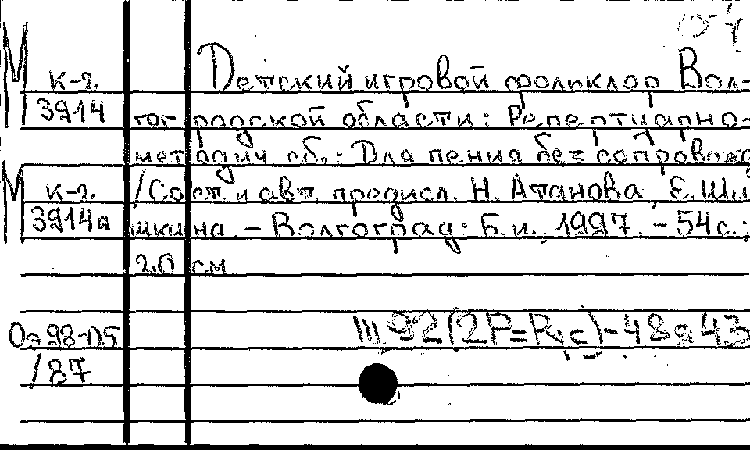 М
К-2.
3914
Детский игровой фольклор Вол=
гоградской области: Репертуарно-
методич. сб.: Для пения без сопровожд.
М
К-2.
3914а
/Сост. и авт. предисл. Н. Атанова, Е. Ши
шкина. - Волгоград: Б.и., 1997. - 54с.;
20 см
Оэ98-05
/87
Щ 92(2Р=Рус)-48я43